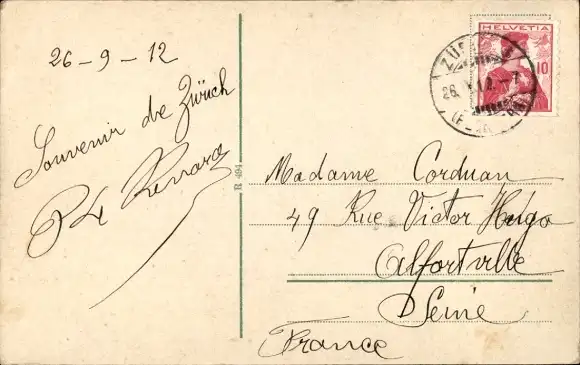 26-9-12
Souvenir de Zürich
Renard
R 494
HELVETIA
10
Madame Corduan
49 Rue Victor Hugo
Alfortville
Seine
France